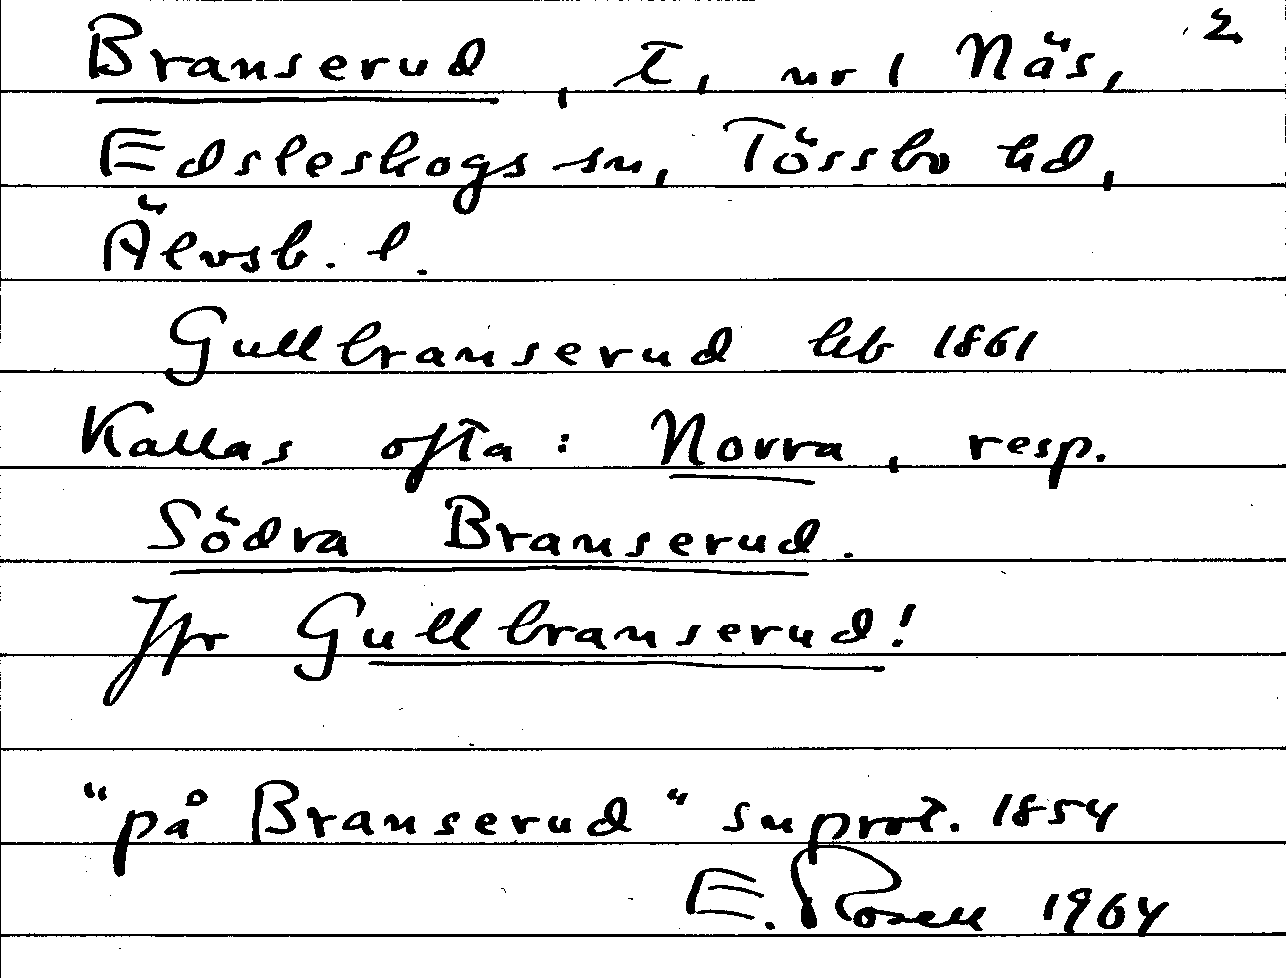 Branserud, T, nr 1 Näs, 2
Edsleskogs sn, Tössbo hd,
Älvsb. l.
Gullbranserud hfb 1861
Kallas ofta: Norra, resp.
Södra Branserud.
Jfr Gullbranserud!
"på Branserud" snprot. 1854
E. Rosell 1964